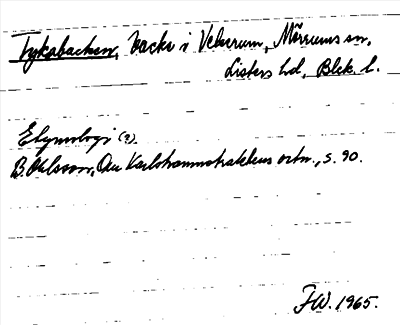 Tykabacken, backe i Vekerum, Mörrums sn,
Listers hd, Blek. l.
Etymologi (?).
B. Ohlsson, Om Karlshamnstraktens ortn., s. 90.
FW. 1965.